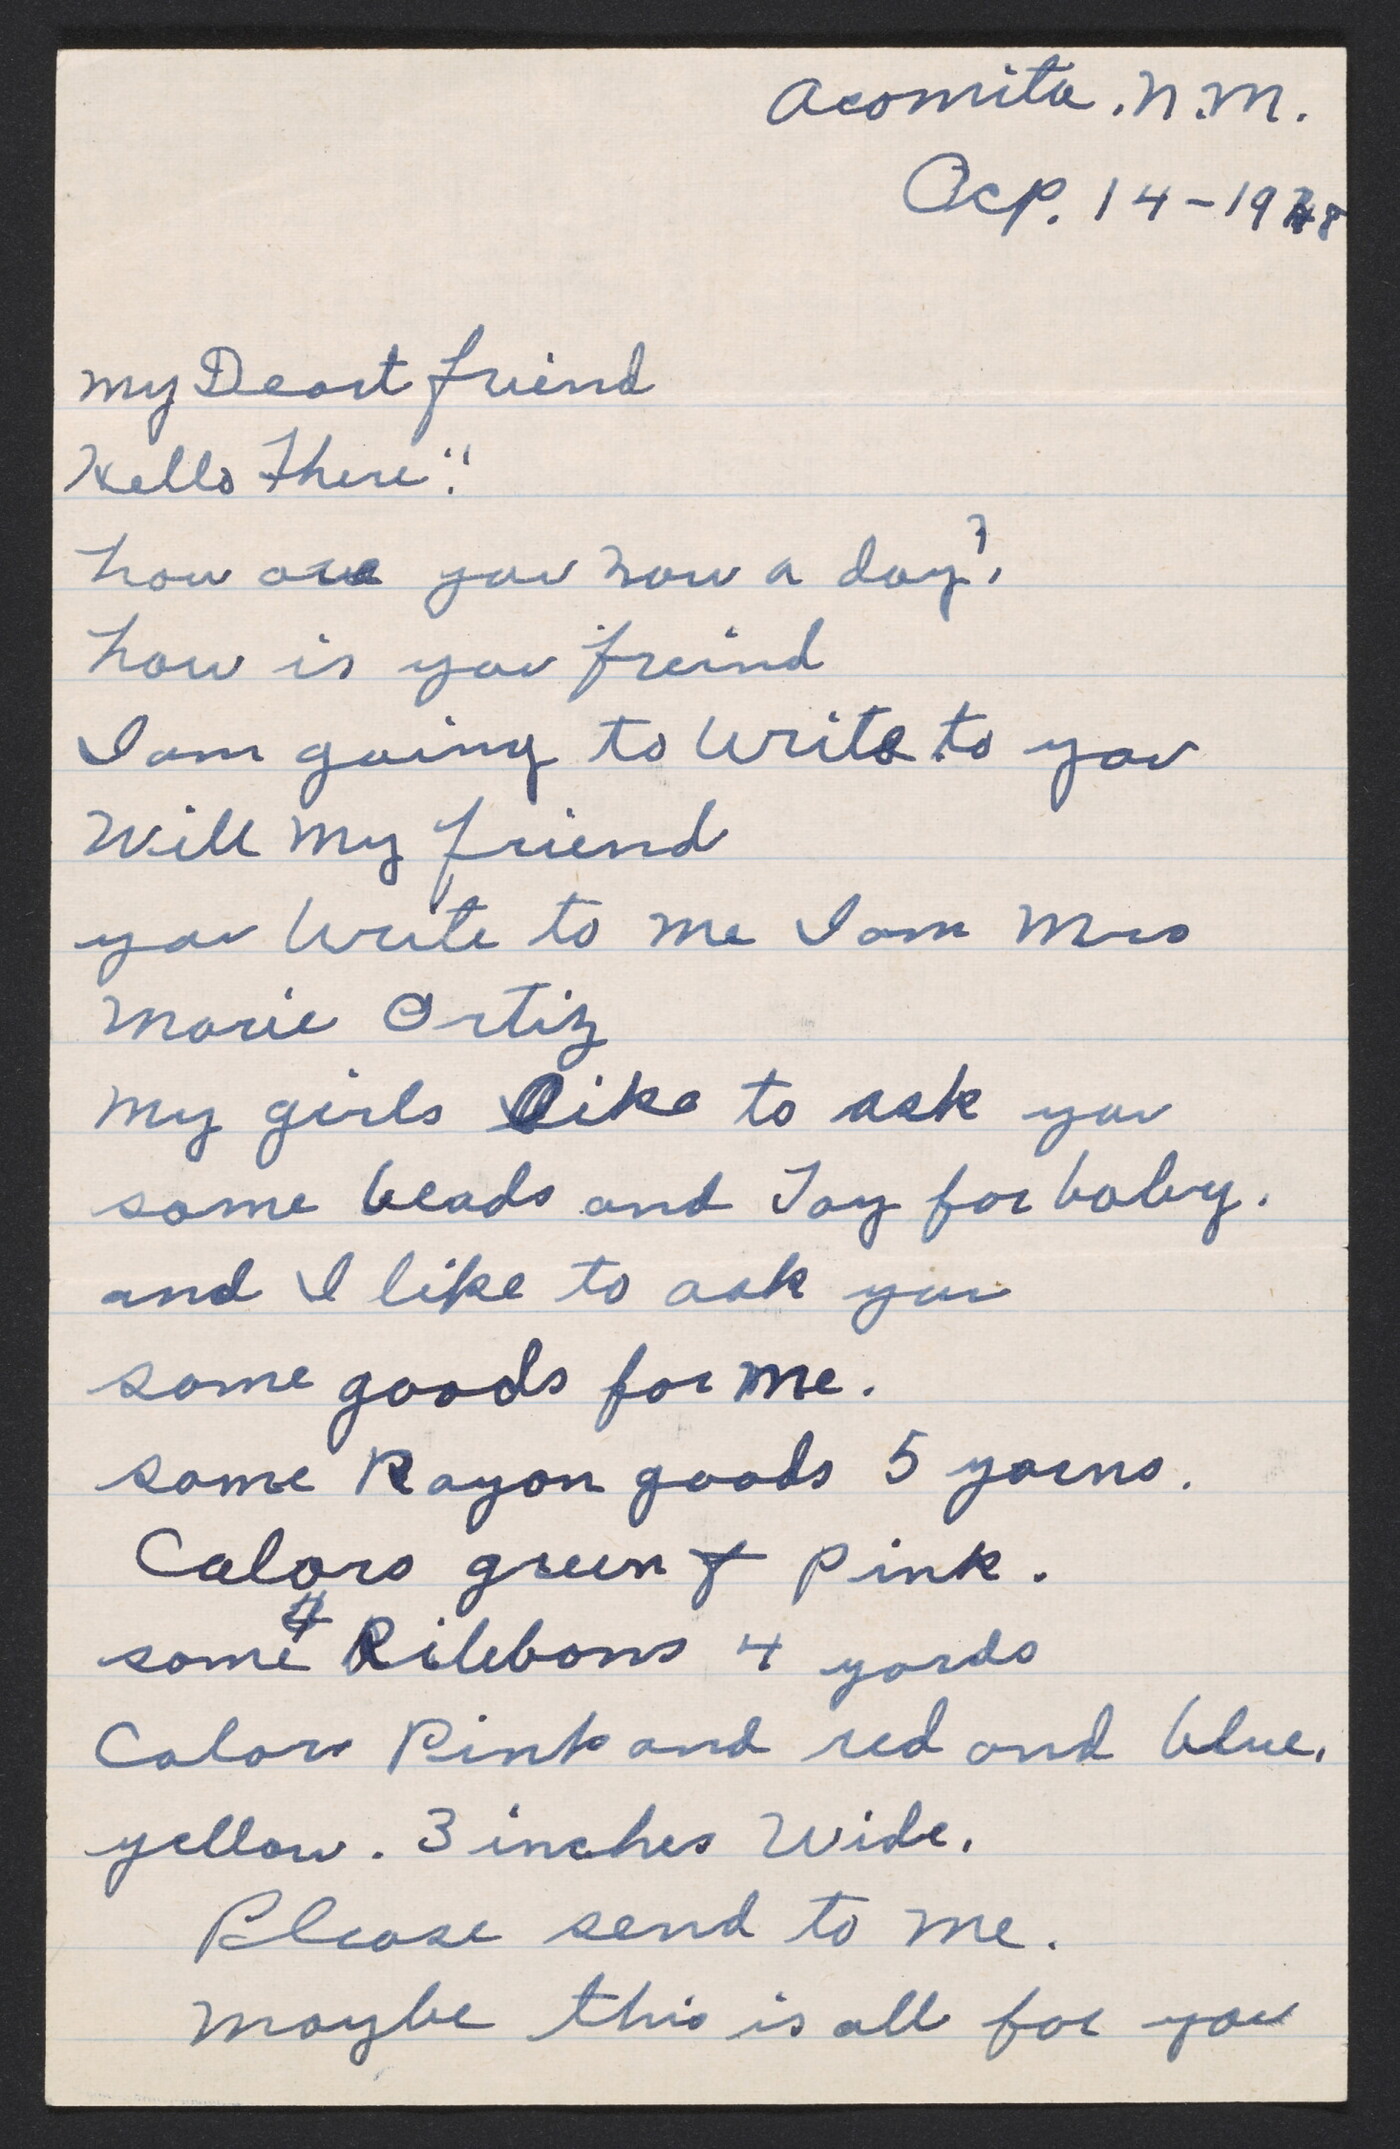 Acomita. N.M.
Ocp. 14-1948
My Deart friend
Hello There"!
how are you now a day?
how is you freind
I am going to write to you
Will my friend
you write to me I am Mrs
Marie Ortiz
My girls like to ask you
some beads and Toy for baby.
and I like to ask you
some goods for me.
some Rayon goods 5 yarns.
Calors green & Pink.
some Ribbons 4 yards
Calors Pink and red and blue.
yellow. 3 inches Wide.
Please send to me.
Maybe this is all for you